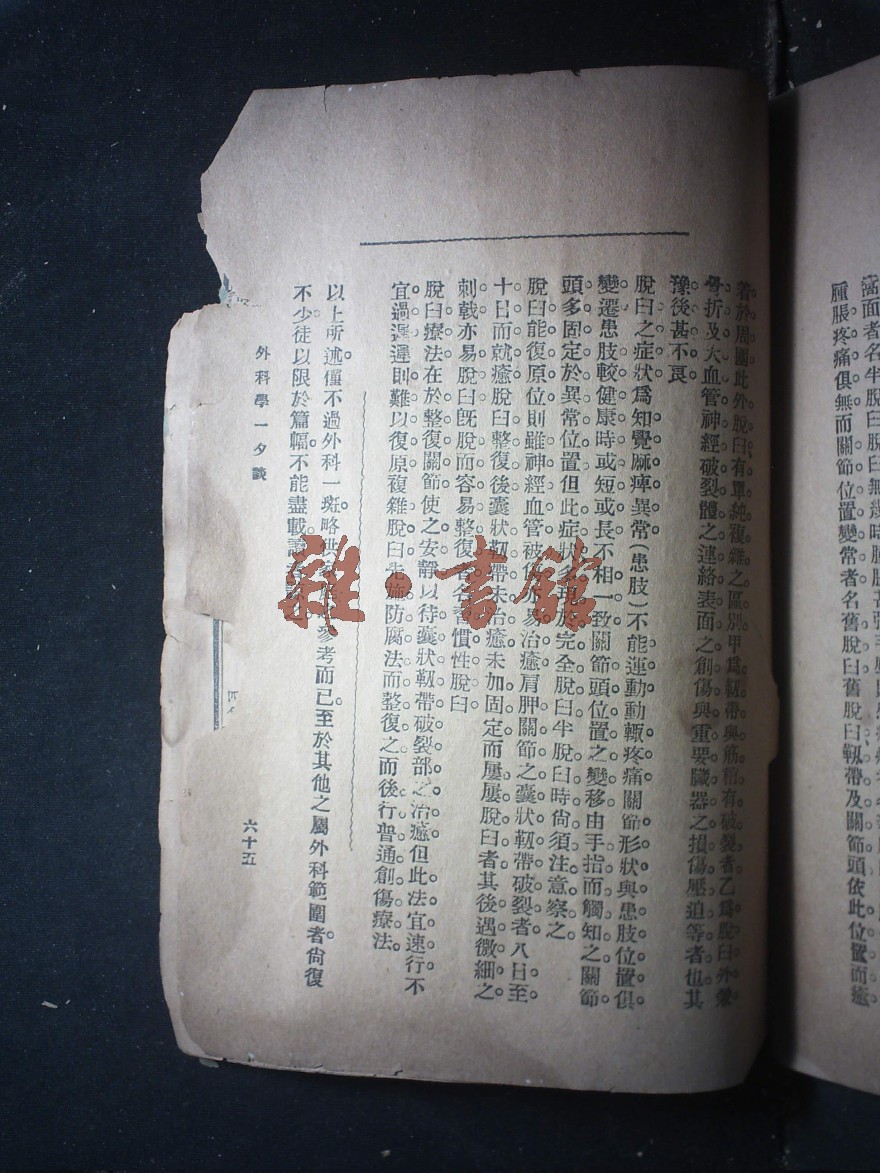 窩面者名半脫臼脫臼無幾時
腫脹疼痛俱無而關節位置變常者名舊脫臼舊脫臼靱帶及關節頭依此位置而癒
着於周圍此外脫臼有單純複雜之區別甲爲靱帶與筋稍有破裂者乙爲脫臼外兼
骨折及大血管神經破裂體之連絡表面之創傷與重要臟器之損傷壓迫等者也其
豫後甚不良
脫臼之症狀爲知覺麻痺異常(患肢)不能運動動輒疼痛關節形狀與患肢位置俱
變遷患肢較健康時或短或長不相一致關節頭位置之變移由手指而觸知之關節
頭多固定於異常位置但此症狀多現於完全脫臼半脫臼時尙須注意察之
脫臼能復原位則雖神經血管被傷亦易治癒肩胛關節之囊狀靱帶破裂者八日至
十日而就癒脫臼整復後囊狀靱帶未治癒未加固定而屢屢脫臼者其後遇微細之
刺戟亦易脫臼旣脫而容易整復者名習慣性脫臼
脫臼療法在於整復關節使之安靜以待囊狀靱帶破裂部之治癒但此法宜速行不
宜過遲遲則難以復原複雜脫臼先施防腐法而整復之而後行普通創傷療法
以上所述僅不過外科一斑略供參考而已至於其他之屬外科範圍者尙復
不少徒以限於篇幅不能盡載
外科學一夕談
六十五
雜·書館